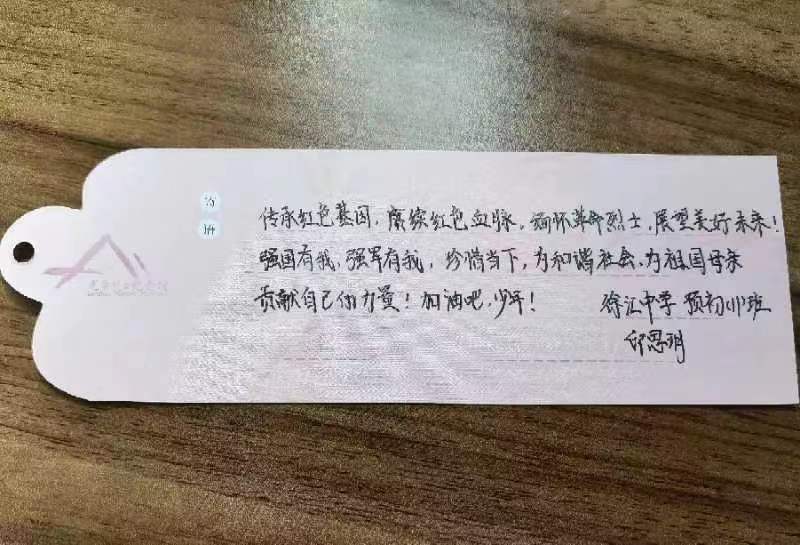 传承红色基因，赓续红色血脉，缅怀革命烈士，展望美好未来！
强国有我，强军有我，珍惜当下，为和谐社会、为祖国母亲
贡献自己的力量！加油吧，少年！
徐汇中学 预初(1)班
邱思玥